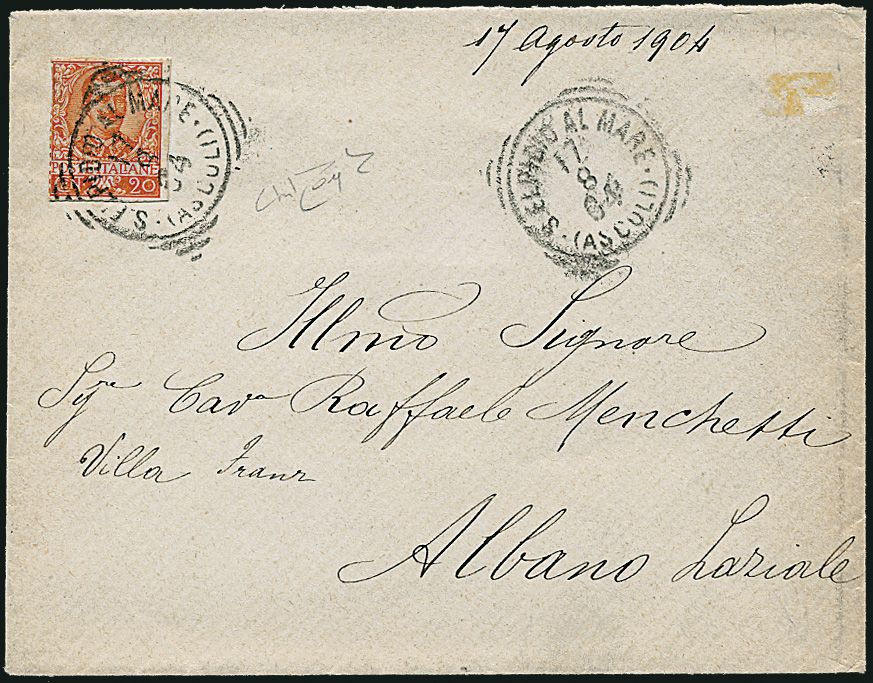 17 Agosto 1904
POSTE ITALIANE
20
S. ELPIDIO AL MARE · (ASCOLI)
17
8
04
S. ELPIDIO AL MARE · (ASCOLI) ·
17
8
04
Illmo Signore
Sigr Cavr Raffaele Menchetti
Villa Franz
Albano Laziale